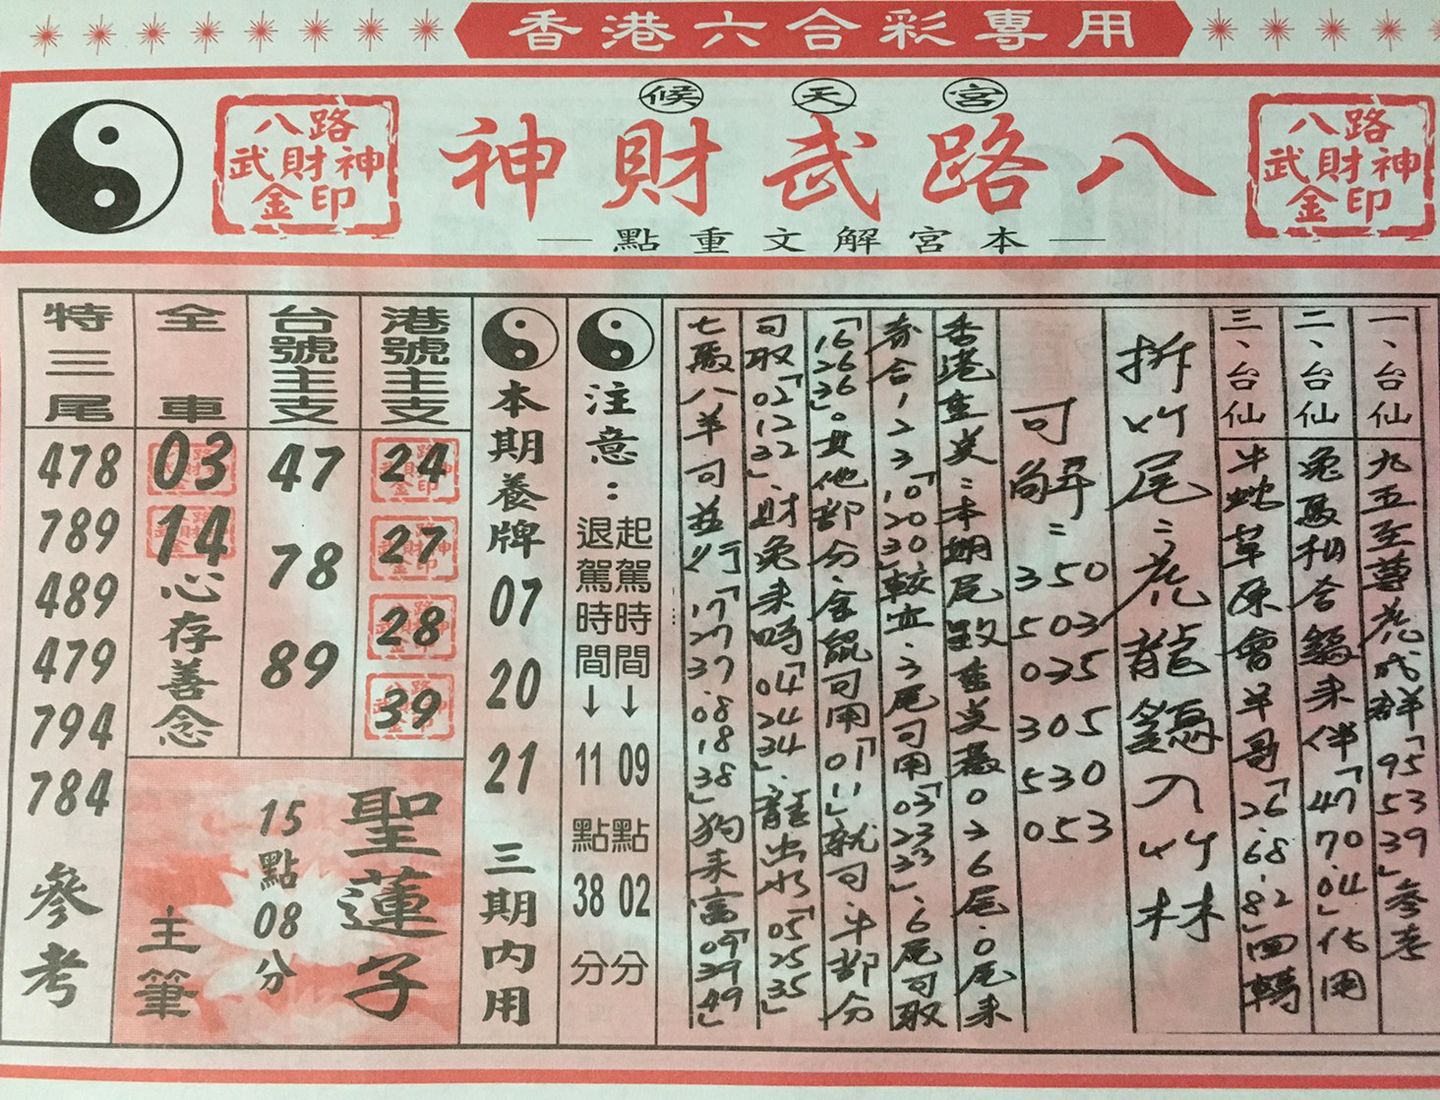 香港六合彩專用
候天宮
八路武財神
八路
武財神
金印
八路
武財神
金印
本宮解文重點
一、台仙 九五至尊虎成群「95 53 39」參考
二、台仙 兔馬相合雞來伴「47 70.04」化用
三、台仙 牛蛇草原會羊哥「26.68.82」四轉
拆竹尾:虎龍鷄入竹林
可解:350 503 035 305 530 053
香港重炎:本期尾數重炎憑036尾.0尾來
春合123「10 20 30」較正.3尾可用「03 23 33」.6尾可取
「16 26 36」。其他部分.含鼠可用「01 11」就可.牛部分
可取「02 12 32」.財兔來嗎「04 24 34」.龍出水「05 25 35」
七馬八羊可並行「17 27 37.08 18 38」狗來富「09 39 49」
注意:
起駕時間↓09點02分
退駕時間↓11點38分
本期養牌 07 20 21 三期內用
港號主支
24
27
28
39
台號主支
47
78
89
全車
03
14
心存善念
特三尾
478
789
489
479
794
784
參考
聖蓮子
15點08分
主筆